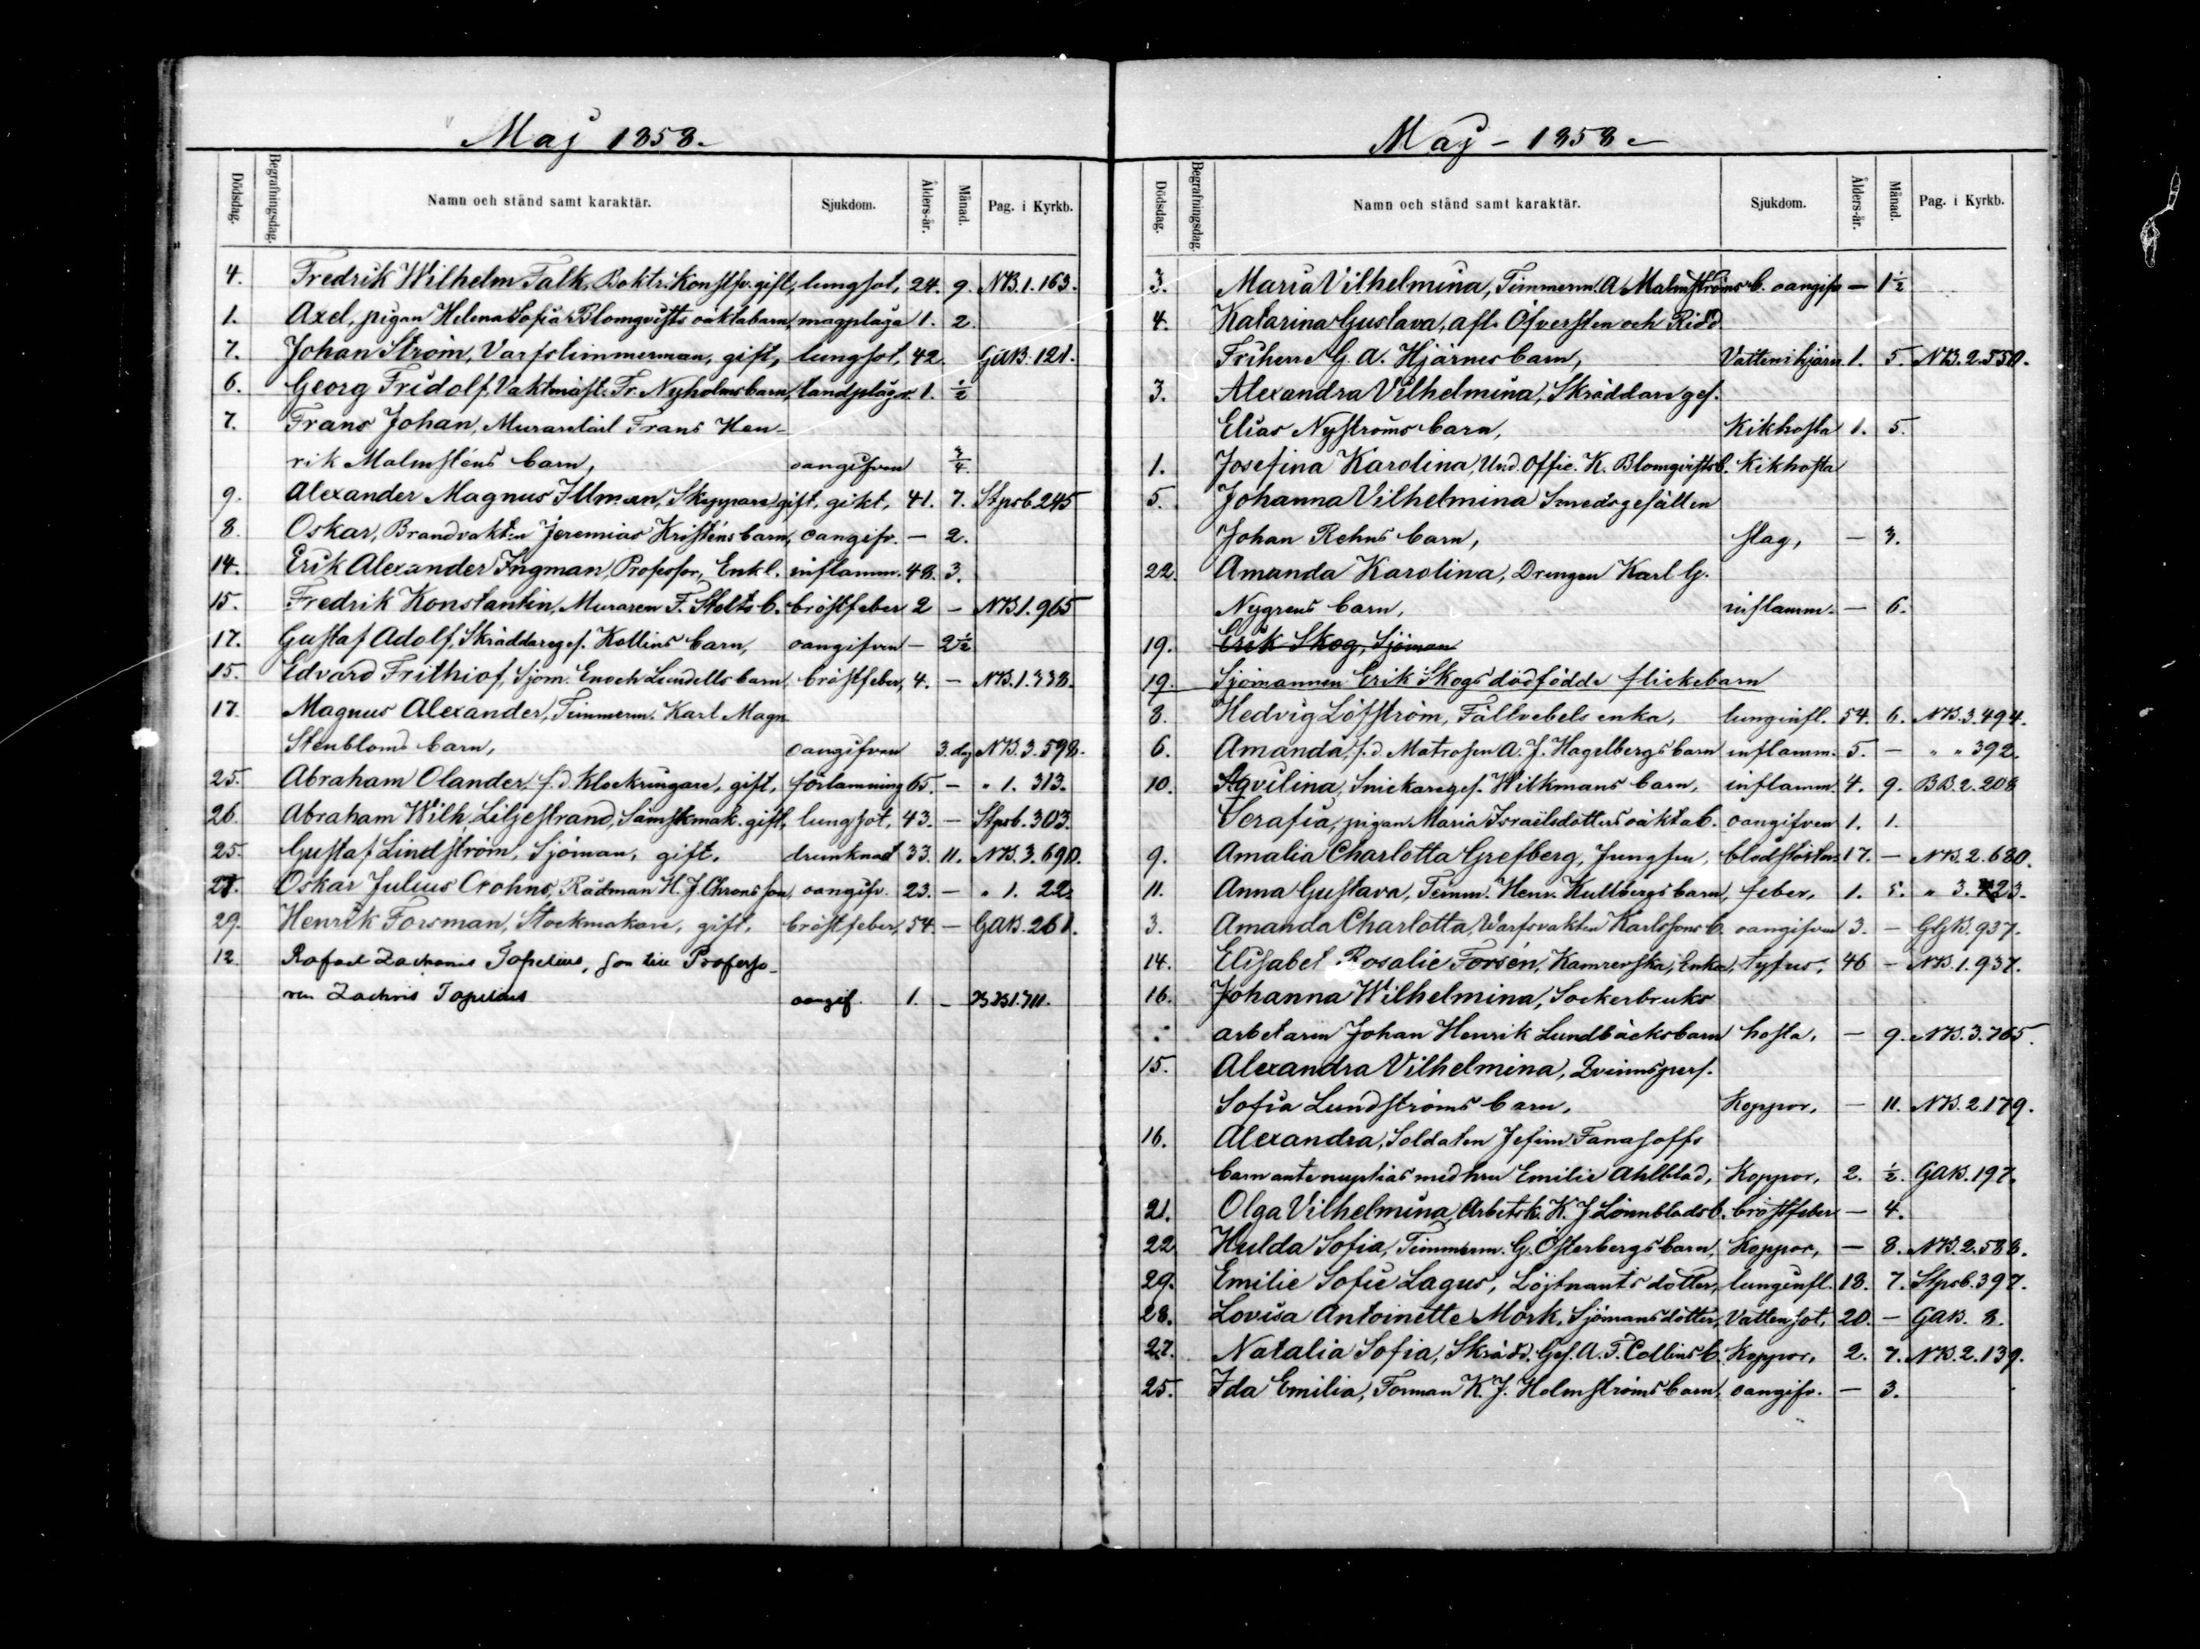 Maj 1858.
Dödsdag. Begrafningsdag. Namn och stånd samt karaktär. Sjukdom. Ålders-år. Månad. Pag. i Kyrkb.
4. Fredrik Wilhelm Falk, Boktr. Konstfv. gift, lungsot, 24. 9. NB.1.163.
1. Axel, pigan Helena Sofia Blomqvists oäkta barn, magplåga 1. 2.
7. Johan Ström, Varfstimmerman, gift, lungsot, 42. GAB. 121.
6. Georg Fridolf, Vaktmäst. Fr. Nyholms barn, tandplågor. 1. ½
7. Frans Johan, Murarelärl. Frans Hen-
rik Malmsténs barn, oangifven ¾.
9. Alexander Magnus Illman, Skeppare gift, gikt, 41. 7. Stpsb. 245
8. Oskar, Brandvakt:n Jeremias Kristéns barn, oangifv. — 2.
14. Erik Alexander Ingman, Professor, Enkl. inflamm. 48. 3.
15. Fredrik Konstantin, Muraren F. Stolts b. bröstfeber 2 — NB.1.965
17. Gustaf Adolf, Skräddareges. Kollins barn, oangifven — 2½
15. Edvard Frithiof, Sjöm. Enoch Lundells barn, bröstfeber, 4. — NB.1.338.
17 Magnus Alexander, Timmerm. Karl Magn
Stenbloms barn, oangifven 3. dag NB. 3. 598.
25. Abraham Olander, f.d. Klockringare, gift, förlamning 65. — " 1. 313.
26. Abraham Wilh. Liljestrand, Sämskmak. gift, lungsot, 43. — Stpsb. 303.
25. Gustaf Lindström, Sjöman, gift. drunknad 33. 11. NB. 3. 690.
27. Oskar Julius Crohns, Rådman H. J. Chrons son, oangifv. 23. — " 1. 22.
29. Henrik Forsman, Stockmakare, gift. bröstfeber, 54. — GAB. 261.
12 Rafael Zachris Topelius, son till Professo-
ren Zachris Topelius oangif. 1. — BB1.711.
Maj — 1858
Dödsdag. Begrafningsdag. Namn och stånd samt karaktär. Sjukdom. Ålders-år. Månad. Pag. i Kyrkb.
3. Maria Vilhelmina, Timmerm. A. Malmströms b. oangifv — 1½
4. Katarina Gustava, afl. Öfversten och Ridd
Friherre G. A. Hjärnes barn, Vatten i hjärn. 1. 5. NB. 2. 550.
3. Alexandra Vilhelmina, Skräddareges.
Elias Nyströms barn, Kikhosta 1. 5.
1. Josefina Karolina, Und. Offic. K. Blomqvists b. Kikhosta
5. Johanna Vilhelmina Smedsgesällen
Johan Rehns barn, slag, — 3.
22. Amanda Karolina, Drengen Karl G.
Nygrens barn, inflamm. — 6.
19. Erik Skog, Sjöman
19. Sjömannen Erik Skogs dödfödde flickebarn
8. Hedvig Löfström, Fältvebels enka, lunginfl. 54. 6. NB. 3. 494.
6. Amanda, f.d. Matrosen A. J. Hagelbergs barn inflamm. 5. — " " 392.
10. Aqvilina, Snickareges. Wilkmans barn, inflamm. 4. 9. BB. 2. 208
Serafia, pigan Maria Israelsdotters oäkta b. oangifven 1. 1.
9. Amalia Charlotta Grefberg, Jungfru, blodstörtn. 17. — NB. 2. 680.
11. Anna Gustava, Timm. Henr. Kullbergs barn, feber, 1. 5. " 3. 23.
3. Amanda Charlotta, Warfsvakten Karlssons b. oangifven 3. — GGB. 937.
14. Elisabet Rosalie Forsén, Kamrerska, Enka, tyfus, 46 — NB. 1. 937.
16. Johanna Wilhelmina, Sockerbruks
arbetaren Johan Henrik Lundbäcks barn hosta, — 9. NB. 3. 765.
15. Alexandra Vilhelmina,
Sofia Lundströms barn, Koppor, — 11. NB. 2. 179.
16. Alexandra, Soldaten Jefim Fanasoffs
barn ante nuptias med hru Emilie Ahlblad, Koppor, 2. ½. GAB. 197.
21. Olga Vilhelmina, Arbetsk. K. J. Lönnblads b. bröstfeber — 4.
22 Hulda Sofia, Timmerm. G. Österbergs barn, Koppor, — 8. NB. 2. 588.
29. Emilie Sofie Lagus, Löjtnants dotter, lunginfl. 18. 7. Stpsb. 397.
28. Lovisa Antoinette Mörk, Sjömans dotter, Vattensot, 20. — GAB. 8.
27. Natalia Sofia, Skrädd. Ges. A. F. Collins b. Koppor, 2. 7. NB. 2. 139.
25. Ida Emilia, Forman K. J. Holmströms barn, oangifv. — 3.